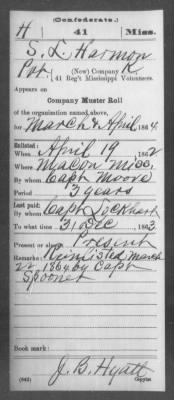 (Confederate.)
H 41 Miss.
S. L. Harmon
Pvt., (New) Company K,
41 Reg't Mississippi Volunteers.
Appears on
Company Muster Roll
of the organization named above,
for March & April, 1864.
Enlisted:
When April 19, 1862
Where Macon Miss.
By whom Capt Moore
Period 3 years
Last paid:
By whom Capt Lockhart
To what time 31 Dec, 1863.
Present or absent Present
Remarks: Reenlisted March
22, 1864 by Capt
Spooner
Book mark:
J. B. Hyatt
(642) Copyist.